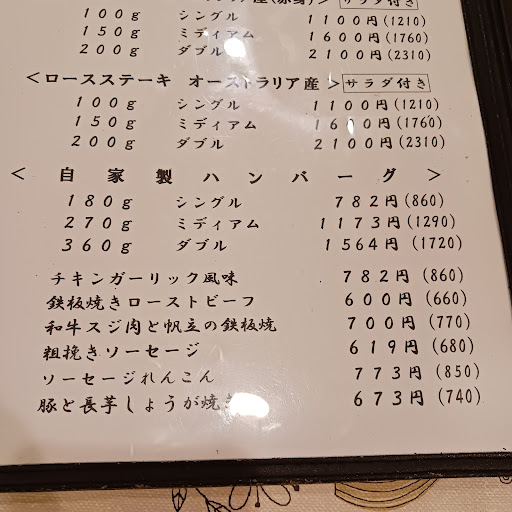 産(赤身)> サラダ付き
100g シングル 1100円(1210)
150g ミディアム 1600円(1760)
200g ダブル 2100円(2310)
<ロースステーキ オーストラリア産> サラダ付き
100g シングル 1100円(1210)
150g ミディアム 1600円(1760)
200g ダブル 2100円(2310)
< 自家製ハンバーグ >
180g シングル 782円(860)
270g ミディアム 1173円(1290)
360g ダブル 1564円(1720)
チキンガーリック風味 782円(860)
鉄板焼きローストビーフ 600円(660)
和牛スジ肉と帆立の鉄板焼 700円(770)
粗挽きソーセージ 619円(680)
ソーセージれんこん 773円(850)
豚と長芋しょうが焼き 673円(740)